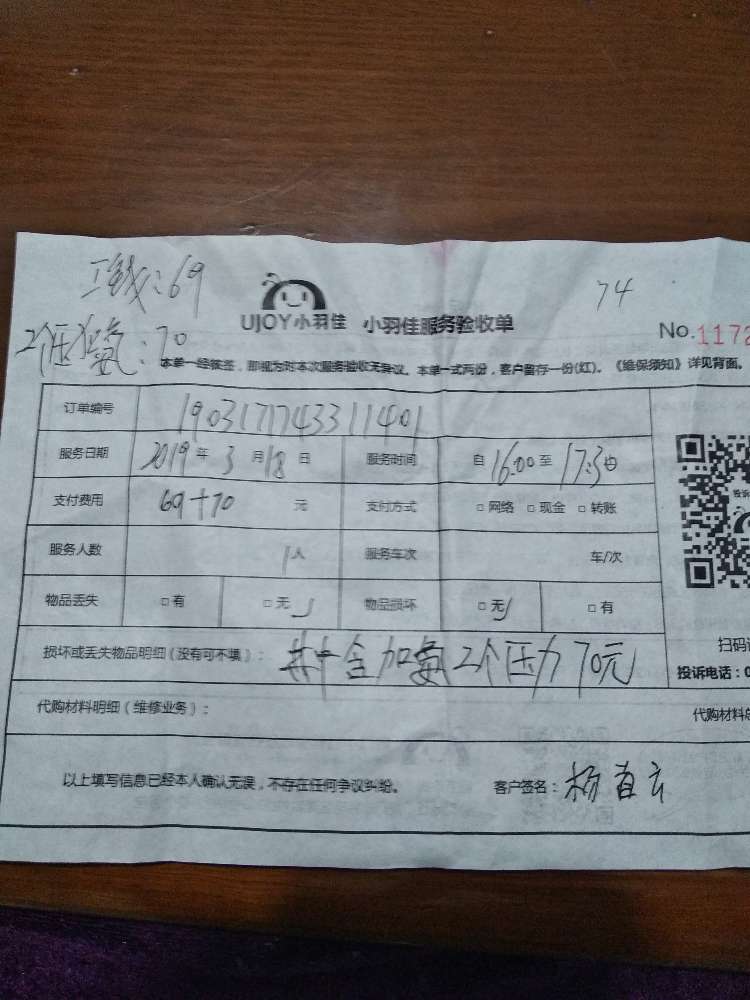 工钱:69
74
UJOY小羽佳 小羽佳服务验收单
2个压 氨:70
No.1172
本单一经签签,即视为对本次服务验收无争议。本单一式两份,客户留存一份(红)。《维保须知》详见背面。
订单编号 1903171743311401
服务日期 2019年3月18日 服务时间 自16:00至17:30
支付费用 69+70 元 支付方式 □网络 □现金 □转账
服务人数 1人 服务车次 车/次
物品丢失 □有 □无 物品损坏 □无 □有
扫码
损坏或丢失物品明细(没有可不填): 其中含加氨2个压力70元
投诉电话:0
代购材料明细(维修业务): 代购材料
以上填写信息已经本人确认无误,不存在任何争议纠纷。 客户签名: 杨